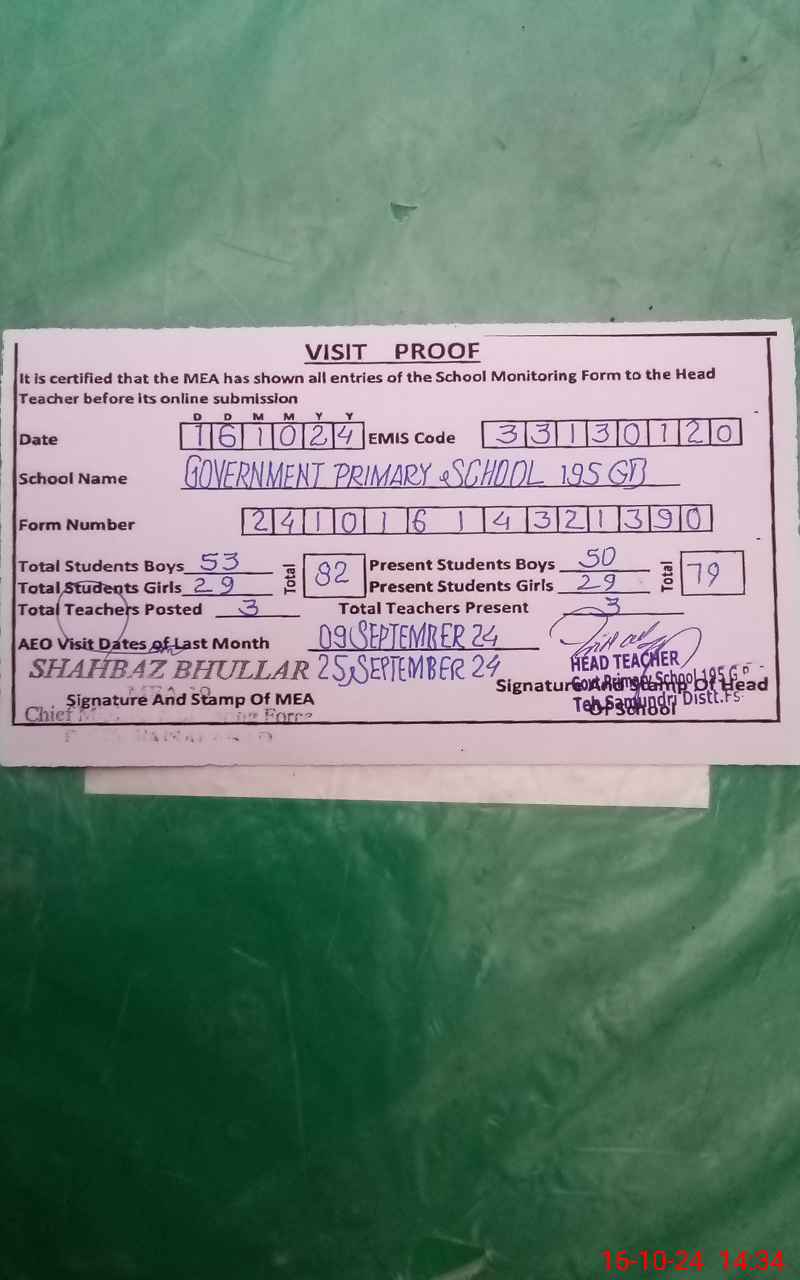 VISIT PROOF
It is certified that the MEA has shown all entries of the School Monitoring Form to the Head
Teacher before its online submission
D D M M Y Y
Date 1 6 1 0 2 4 EMIS Code 3 3 1 3 0 1 2 0
School Name GOVERNMENT PRIMARY SCHOOL 195 GB
Form Number 2 4 1 0 1 6 1 4 3 2 1 3 9 0
Total Students Boys 53 Total 82 Present Students Boys 50 Total 79
Total Students Girls 29 Present Students Girls 29
Total Teachers Posted 3 Total Teachers Present 3
AEO Visit Dates of Last Month 09 SEPTEMBER 24
SHAHBAZ BHULLAR 25, SEPTEMBER 24
HEAD TEACHER
Govt Primary School 195 G
Signature And Stamp Of Head
Of School
Teh Samundri Distt.Fs
Signature And Stamp Of MEA
Chief Force
16-10-24 14:34